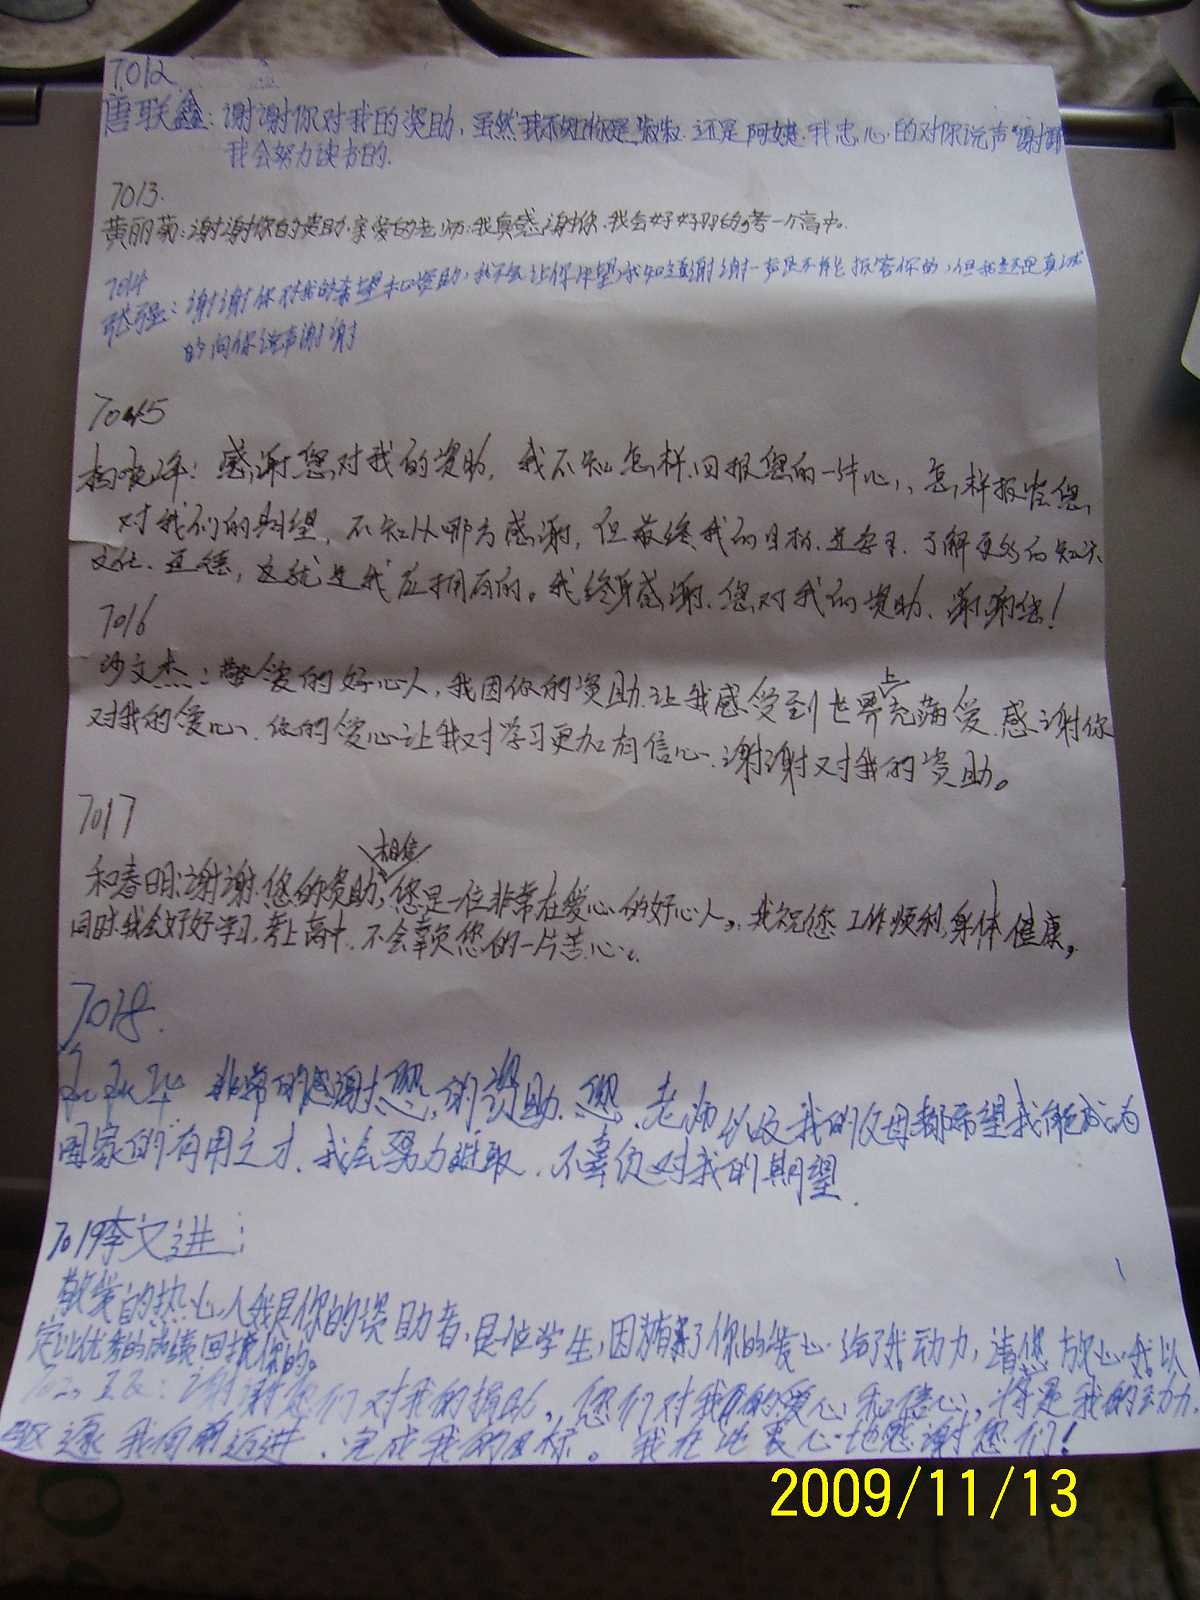 7012
唐联鑫：谢谢你对我的资助，虽然我不知你是叔叔还是阿姨.我忠心的对你说声“谢谢
我会努力读书的.
7013.
黄丽菊：谢谢你的资助.亲爱的老师.我真感谢你.我会好好的考一个高中。
7014
张强：谢谢你对我的希望和资助，我不会让你失望，我知道谢谢一声是不能报答你的，但我还是真诚
的向你说声谢谢
7015
感谢您对我的资助，我不知怎样回报您的一片心，怎样报答您
对我们的期望，不知从哪方感谢，但最终我的目标是学习.了解更多的知识
文化、道德，这就是我应拥有的。我终身感谢.您对我的资助、谢谢您！
7016
沙文杰：敬爱的好心人，我因你的资助.让我感受到世界上充满爱.感谢你
对我的爱心、你的爱心让我对学习更加有信心.谢谢对我的资助。
7017
相信
和春明：谢谢您的资助，您是一位非常在爱心的好心人，我祝您工作顺利，身体健康，
同时我会好好学习，考上高中.不会辜负您的一片苦心。
7018.
非常的感谢您的资助.您、老师以及我的父母都希望我能成为
国家的有用之才、我会努力进取.不辜负对我的期望.
7019李文进：
敬爱的热心人我是你的资助者，是位学生，因为有了你的爱心给了我动力，请您放心我以
定以优秀的成绩回报你的。
谢谢您们对我的捐助，您们对我的爱心和信心，将是我的动力，
驱逐我向前迈进.完成我的目标。我在此衷心地感谢您们！
2009/11/13